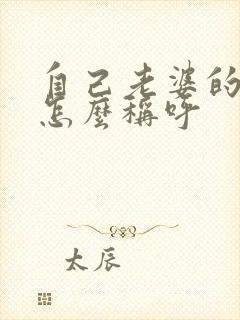 自己老婆的
怎麼稱呼
太辰